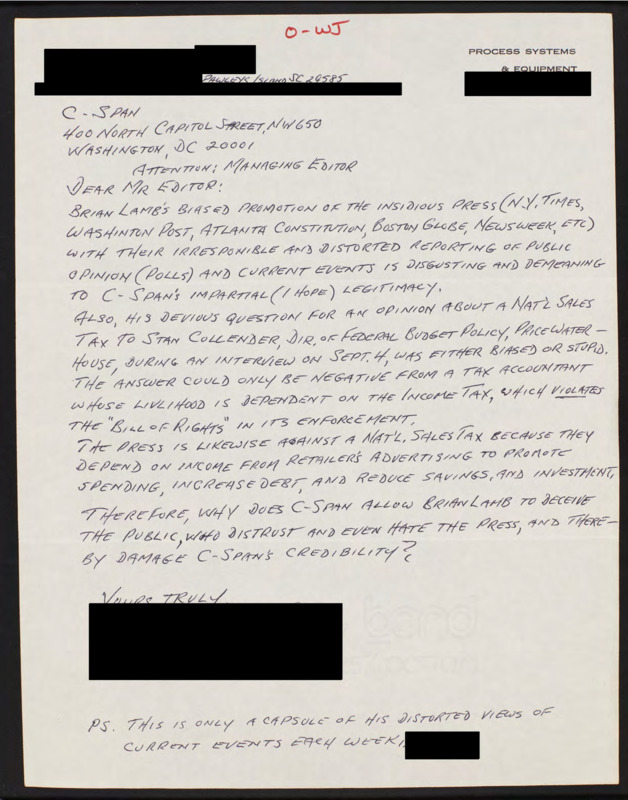 O-WJ
PROCESS SYSTEMS
& EQUIPMENT
PAWLEYS ISLAND SC 29585
C-SPAN
400 NORTH CAPITOL STREET, NW 650
WASHINGTON, DC 20001
ATTENTION: MANAGING EDITOR
DEAR MR EDITOR:
BRIAN LAMB'S BIASED PROMOTION OF THE INSIDIOUS PRESS (N.Y. TIMES,
WASHINTON POST, ATLANTA CONSTITUTION, BOSTON GLOBE, NEWSWEEK, ETC)
WITH THEIR IRRESPONSIBLE AND DISTORTED REPORTING OF PUBLIC
OPINION (POLLS) AND CURRENT EVENTS IS DISGUSTING AND DEMEANING
TO C-SPAN'S IMPARTIAL (I HOPE) LEGITIMACY.
ALSO, HIS DEVIOUS QUESTION FOR AN OPINION ABOUT A NAT'L SALES
TAX TO STAN COLLENDER, DIR. OF FEDERAL BUDGET POLICY, PRICE WATER-
HOUSE, DURING AN INTERVIEW ON SEPT. 4, WAS EITHER BIASED OR STUPID.
THE ANSWER COULD ONLY BE NEGATIVE FROM A TAX ACCOUNTANT
WHOSE LIVLIHOOD IS DEPENDENT ON THE INCOME TAX, WHICH VIOLATES
THE "BILL OF RIGHTS" IN ITS ENFORCEMENT.
THE PRESS IS LIKEWISE AGAINST A NAT'L. SALES TAX BECAUSE THEY
DEPEND ON INCOME FROM RETAILER'S ADVERTISING TO PROMOTE
SPENDING, INCREASE DEBT, AND REDUCE SAVINGS, AND INVESTMENT,
THEREFORE, WHY DOES C-SPAN ALLOW BRIAN LAMB TO DECEIVE
THE PUBLIC, WHO DISTRUST AND EVEN HATE THE PRESS, AND THERE-
BY DAMAGE C-SPAN'S CREDIBILITY?
YOURS TRULY,
PS. THIS IS ONLY A CAPSULE OF HIS DISTORTED VIEWS OF
CURRENT EVENTS EACH WEEK.